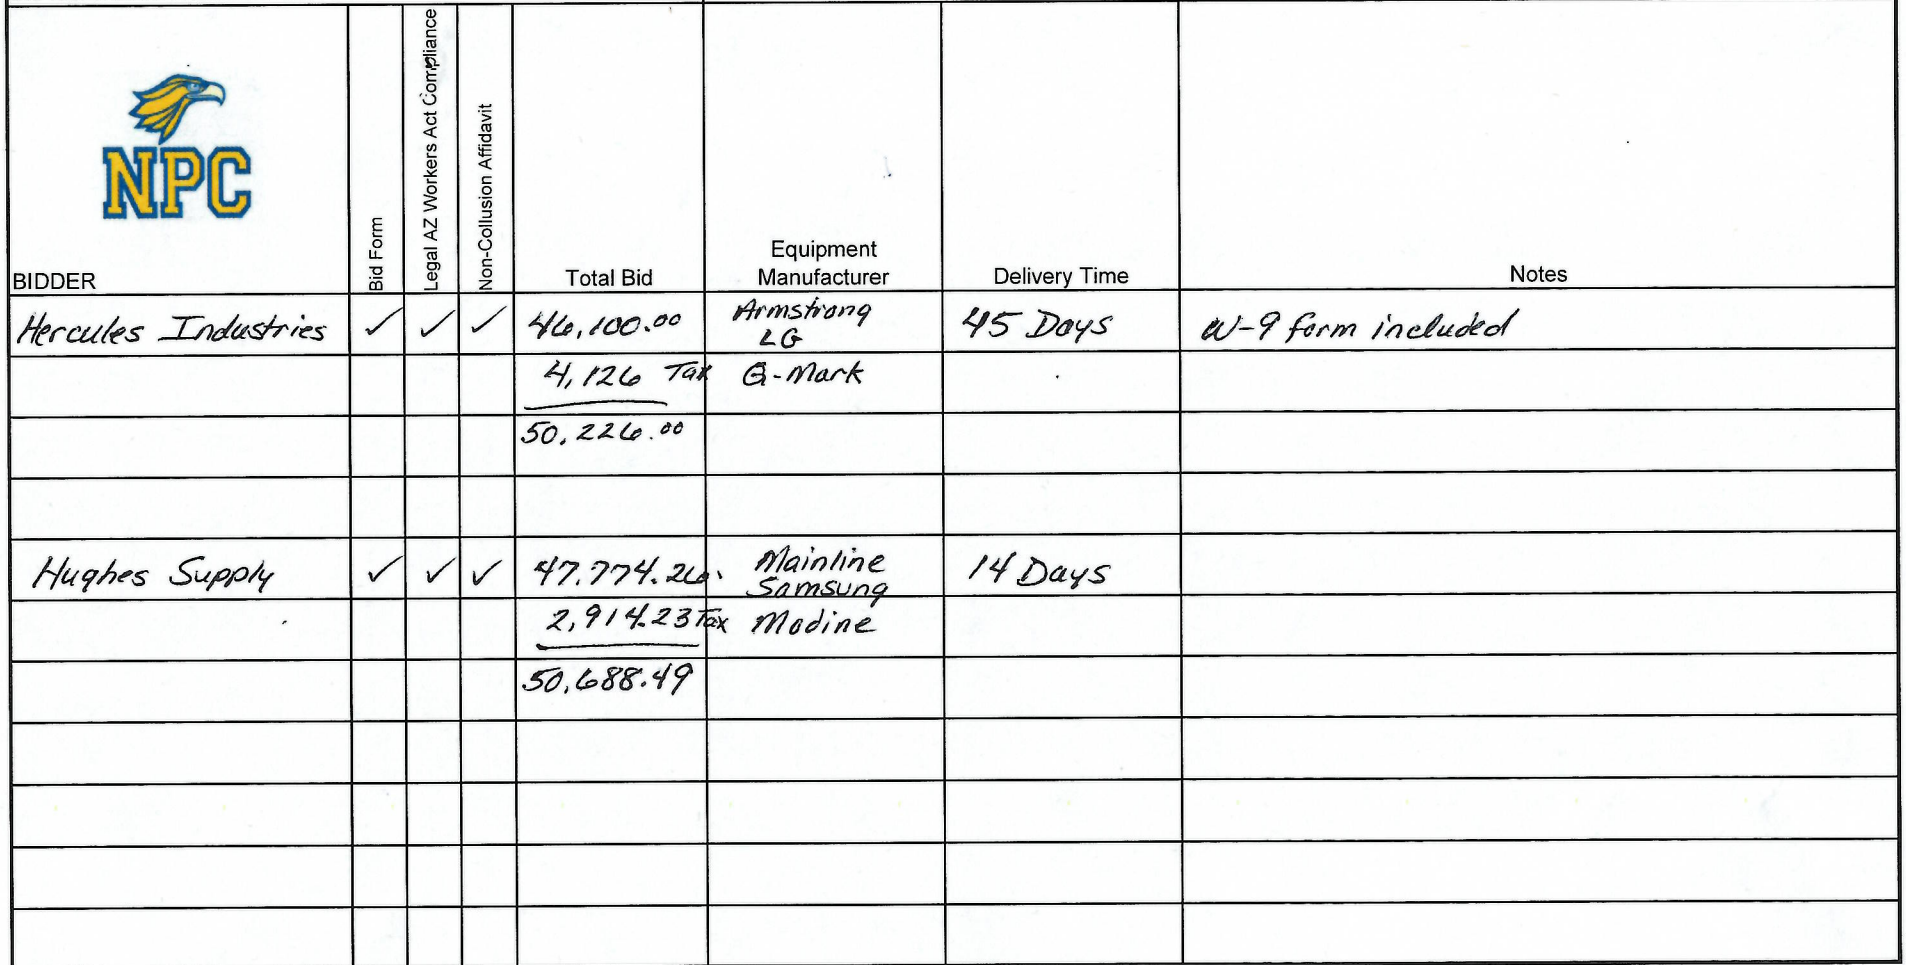 NPC
BIDDER
Bid Form
Legal AZ Workers Act Compliance
Non-Collusion Affidavit
Total Bid
Equipment
Manufacturer
Delivery Time
Notes
Hercules Industries ✓ ✓ ✓ 46,100.00 Armstrong 45 Days W-9 form included
LG
4,126 Tax Q-Mark
50,226.00
Hughes Supply ✓ ✓ ✓ 47,774.26 Mainline 14 Days
Samsung
2,914.23 Tax Modine
50,688.49